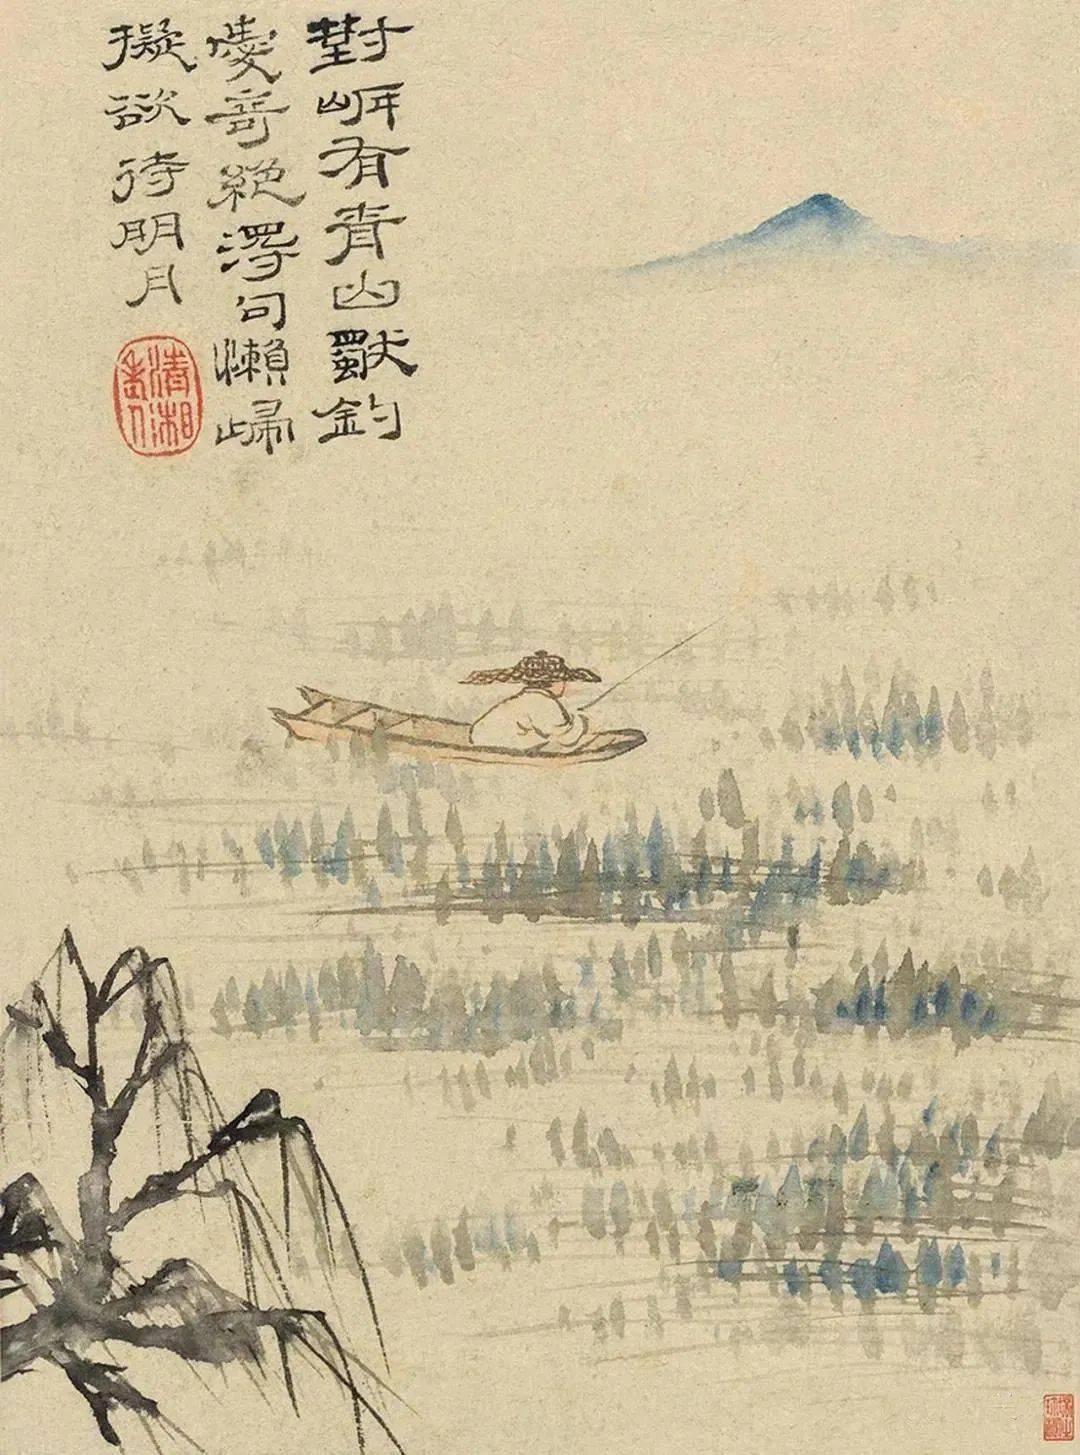 對岸有青山獨釣
處奇絕得句懶歸
擬欲待明月
清湘老人